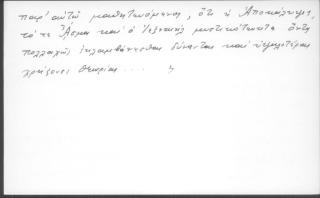 παρ' αὐτῶ μαθητευόμενος, ὅτι ἡ Ἀποκάλυψις,
τό τε Ἆσμα καὶ ὁ Ἰεζεκιὴλ μυστικώτατα ὄντα
πολλαχῶς ἐκλαμβάνεσθαι δύνανται καὶ ὑψηλοτέρας
χρῄζουσι θεωρίας ....